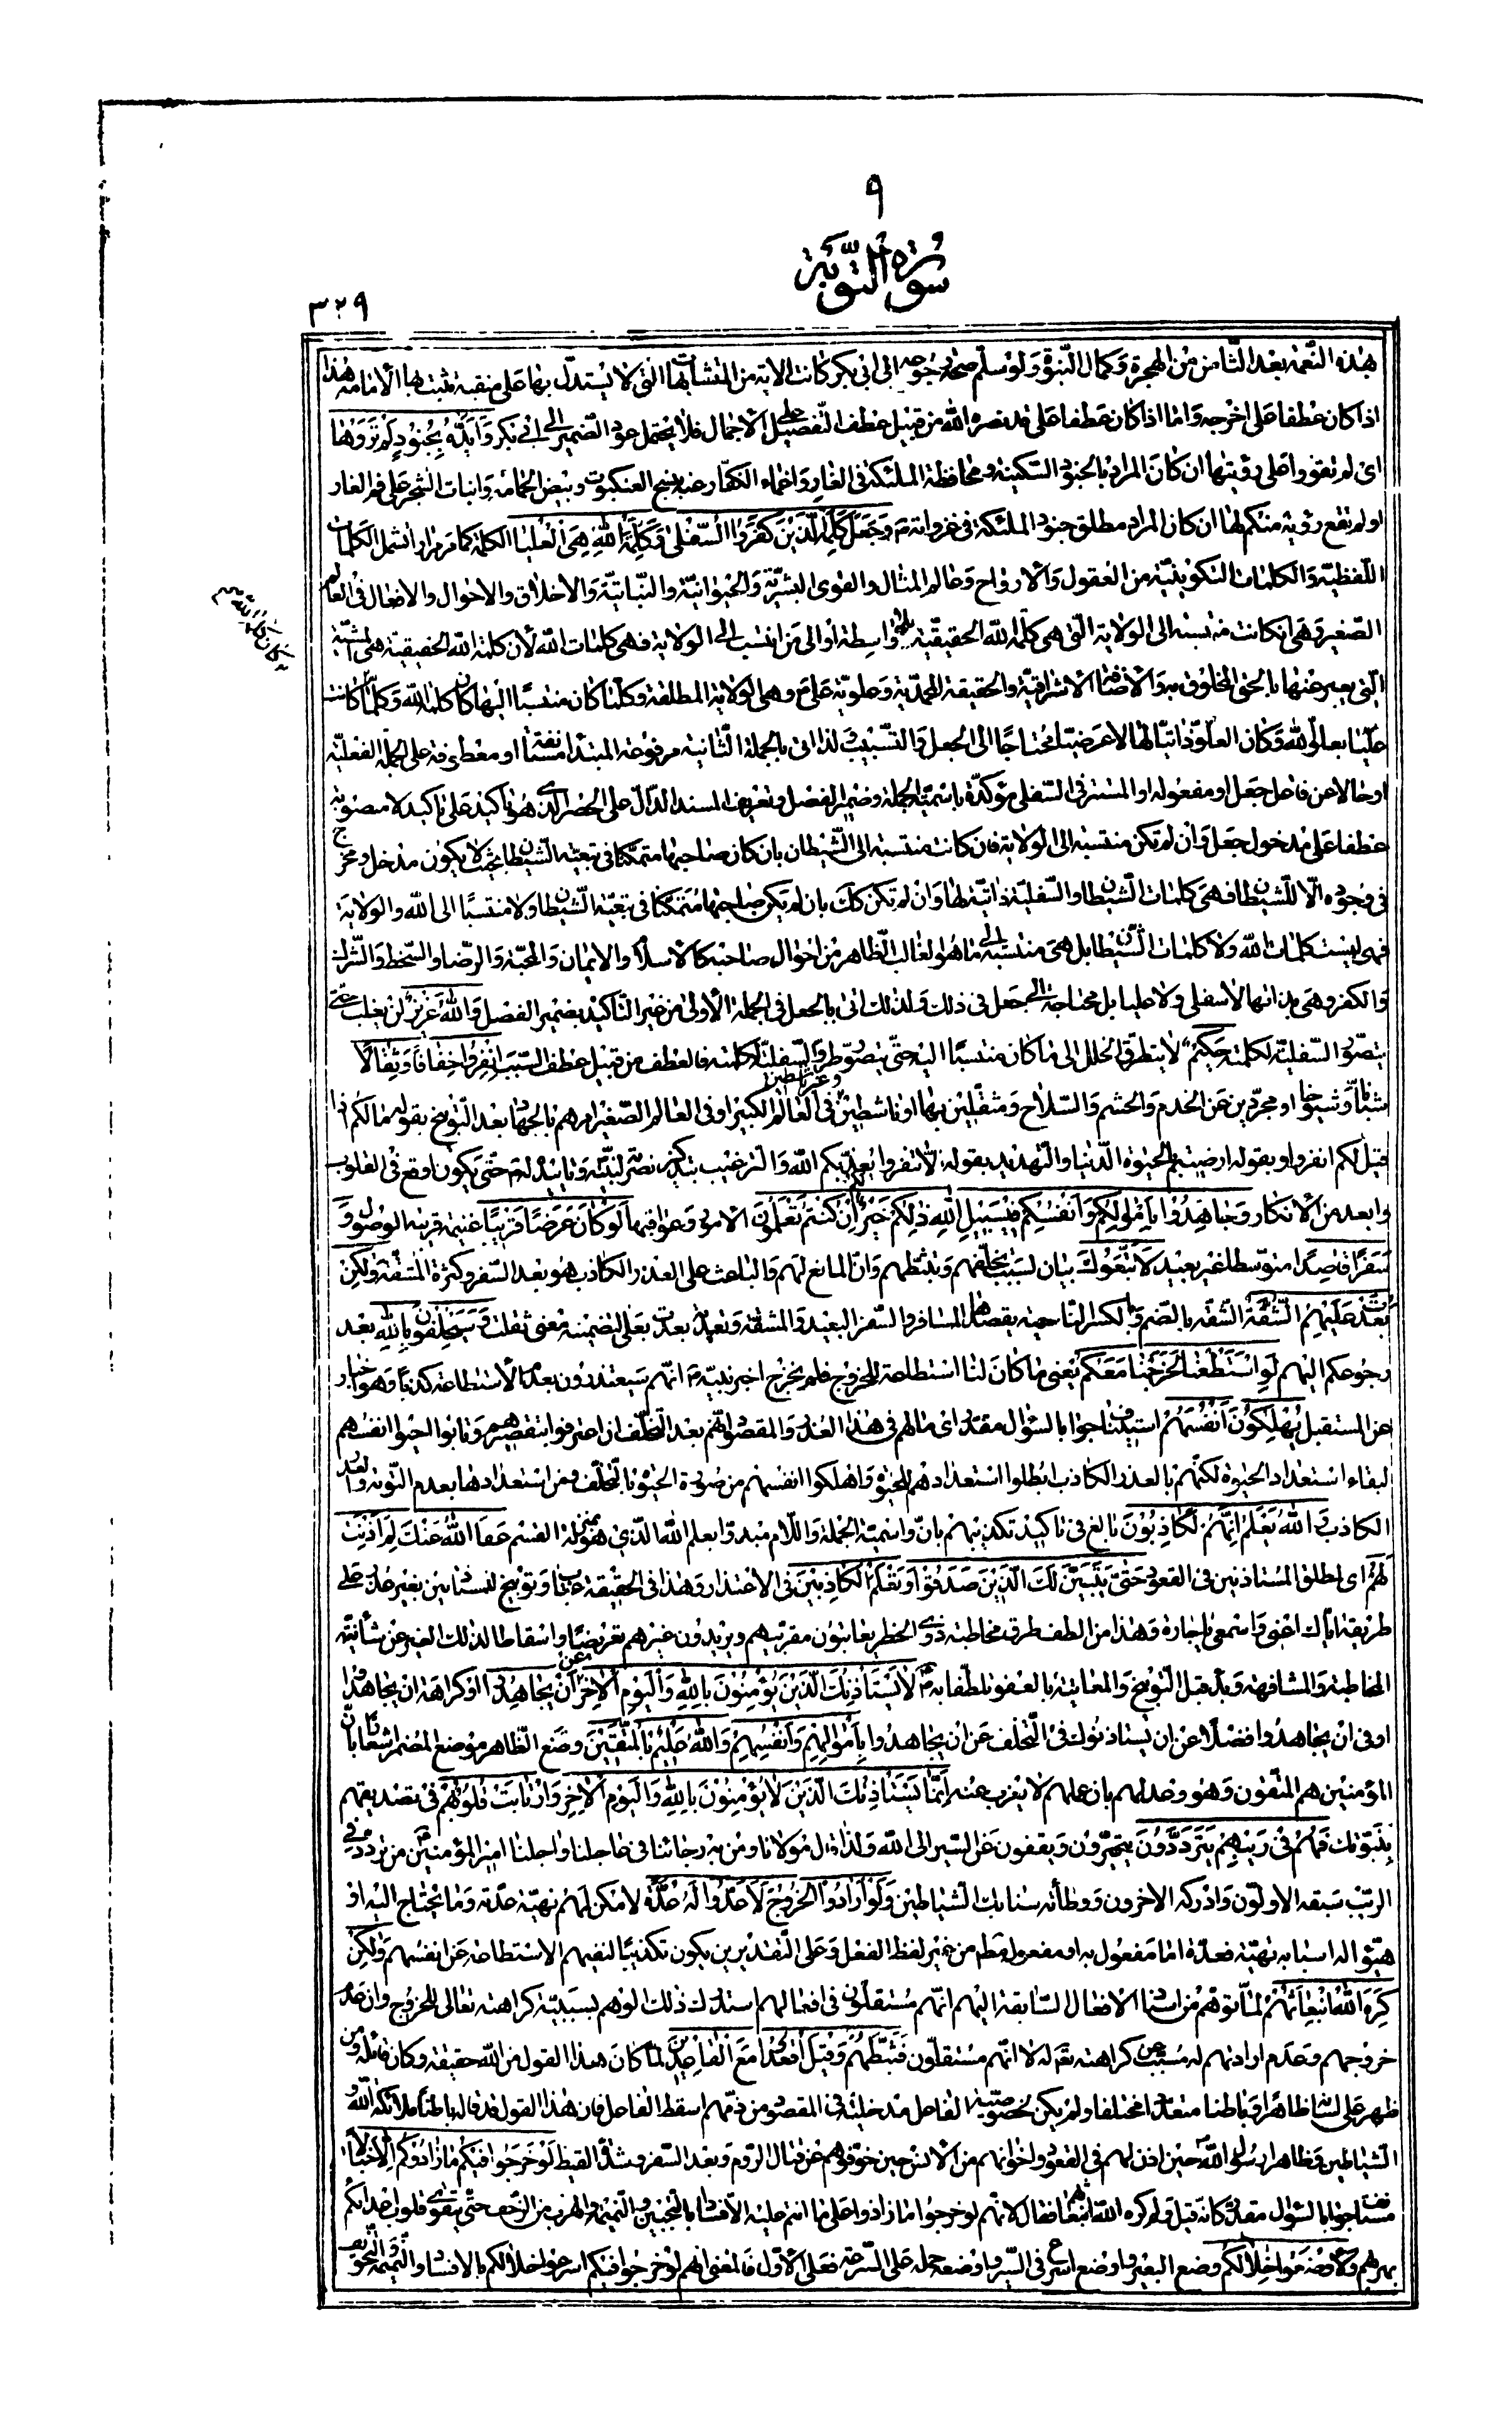 ٩
سورة التوبة
٣٢٩
هذه النعمة بعد الثامن من الهجرة وكمال النبوة ولو سلم صحة رجوعه الى ابى بكر كانت الاية من المتشابهات التى لا يستدل بها على منقبة يثبت بها الامامة هذا
اذا كان عطفا على اخرجه واما اذا كان عطفا على قد نصره الله من قبيل عطف التفصيل على الاجمال فلا يحتمل عود الضمير الى ابى بكر وَاَيَّدَهُ بِجُنُودٍ لَمْ تَرَوْهَا
اى لم تقووا على رؤيتها ان كان المراد بالجنود السكينة ومحافظة الملئكة فى الغار واغماء الكفار عنه بنسج العنكبوت وبيض الحمامة وانبات الشجر على فم الغار
او لم تقع رؤية منكم لها ان كان المراد مطلق جنود الملئكة فى غزواته م وَجَعَلَ كَلِمَةَ الَّذِينَ كَفَرُوا السُّفْلَى وَكَلِمَةُ اللهِ هِىَ الْعُلْيَا الكلمة كما مر مرارا تشمل الكلمات
اللفظية والكلمات التكوينية من العقول والارواح وعالم المثال والقوى البشرية والحيوانية والنباتية والاخلاق والاحوال والافعال فى العالم
الصغير وهى ان كانت منتسبة الى الولاية التى هى كلمة الله الحقيقية بلا واسطة او الى من انتسب الى الولاية فهى كلمات الله لان كلمة الله الحقيقية هى المشية
التى يعبر عنها بالحق المخلوق به والاضافة الاشراقية والحقيقة المحمدية وعلوية على م وهى الولاية المطلقة وكلما كان منتسبا اليها كان كلمة الله وكلما كانت
عليا بعلو الله وكان العلو ذاتيا لها لا عرضيا محتاجا الى الجعل والتسبيب ولذا اتى بالجملة الثانية مرفوعة المبتدا مستانفة او معطوفة على الجملة الفعلية
او حالا عن فاعل جعل او مفعوله او المستتر فى السفلى مؤكدة باسمية الجملة وضمير الفصل وتعريف المسند الدال على الحصر الذى هو تاكيد على تاكيد لا منصوبة
عطفا على مدخول جعل وان لم تكن منتسبة الى الولاية فان كانت منتسبة الى الشيطان بان كان صاحبها متمكنا فى تبعية الشيطان بحيث لا يكون مدخل ومخرج
فى وجوده الا للشيطان فهى كلمات الشيطان والسفلية ذاتية لها وان لم تكن كك بان لم يكن صاحبها متمكنا فى تبعية الشيطان ولا منتسبا الى الله والولاية
فهى ليست كلمات الله ولا كلمات الشيطان بل هى منتسبة الى ما هو لغالب الظاهر من احوال صاحبه كالاسلام والايمان والمحبة والرضا والسخط والشرك
والكفر وهى بذاتها لا سفلى ولا عليا بل محتاجة الى الجعل فى ذلك ولذلك اتى بالجعل فى الجملة الاولى من غير التاكيد بضمير الفصل وَاللهُ عَزِيزٌ لن يغلب حتى
يتصور السفلية لكلمته حَكِيمٌ لا يتطرق الخلل الى ما كان منتسبا اليه حتى يتصور طرو السفلية لكلمته فالعطف من قبيل عطف السبب اِنْفِرُوا خِفَافًا وَثِقَالاً
شبانا وشيوخا او مجردين عن الخدم والحشم والسلاح ومثقلين بها او ناشطين وغير ناشطين فى العالم الكبير او فى العالم الصغير امرهم بالجهاد بعد التوبيخ بقوله ما لكم اذا
قيل لكم انفروا وبقوله ارضيتم بالحيوة الدنيا والتهديد بقوله الا تنفروا يعذبكم الله والترغيب بتذكير نصر لنبيه وتاييده له م حتى يكون اوقع فى القلوب
وابعد من الانكار وَجَاهِدُوا بِاَمْوَالِكُمْ وَاَنْفُسِكُمْ فِى سَبِيلِ اللهِ ذَلِكُمْ خَيْرٌ لَكُمْ اِنْ كُنْتُمْ تَعْلَمُونَ الامور وعواقبها لَوْ كَانَ عَرَضًا قَرِيبًا غنيمة قريبة الوصول وَ
سَفَرًا قَاصِدًا متوسطا غير بعيد لَاتَّبَعُوكَ بيان لسبب تخلفهم وتثبطهم وان المانع لهم والباعث على العذر الكاذب هو بعد السفر وكثرة المشقة وَلَكِنْ
بَعُدَتْ عَلَيْهِمُ الشُّقَّةُ الشقة بالضم وبالكسر الناحية يقصدها المسافر والسفر البعيد والمشقة وتعدية بعدت بعلى لتضمينه معنى ثقلت وَسَيَحْلِفُونَ بِاللهِ بعد
رجوعكم اليهم لَوِ اسْتَطَعْنَا لَخَرَجْنَا مَعَكُمْ يعنى ما كان لنا استطاعة للخروج فلم نخرج اخبر نبيه م انهم سيعتذرون بعدم الاستطاعة كذبا وهو اخبار
عن المستقبل يُهْلِكُونَ اَنْفُسَهُمْ استيناف جواب لسؤال مقدر اى ما لهم فى هذا العذر والمقصود انهم بعد التخلف ان اعترفوا بتقصيرهم وتابوا احيوا انفسهم
لبقاء استعداد الحيوة لكنهم بالعذر الكاذب ابطلوا استعدادهم للحيوة واهلكوا انفسهم من صورة الحيوة بالتخلف ومن استعدادها بعدم التوبة والعذر
الكاذب وَاللهُ يَعْلَمُ اِنَّهُمْ لَكَاذِبُونَ بالغ فى تاكيد تكذيبهم بان واسمية الجملة واللام مبدوا بعلم الله الذى هو بمنزلة القسم عَفَا اللهُ عَنْكَ لِمَ اَذِنْتَ
لَهُمْ اى لمطلق المستاذنين فى القعود حَتَّى يَتَبَيَّنَ لَكَ الَّذِينَ صَدَقُوا وَتَعْلَمَ الْكَاذِبِينَ فى الاعتذار وهذا فى الحقيقة عتاب وتوبيخ للمستاذنين بغير عذر على
طريقة اياك اعنى واسمعى يا جارة وهذا من الطف طرق مخاطبة ذوى الخطر يعاتبون مقربيهم ويريدون غيرهم تعريضا واسقاطا لذلك الغير عن شأنية
المخاطبة والمشافهة وبدء قبل التوبيخ والمعاتبة بالعفو تلطفا به م لَا يَسْتَأْذِنُكَ الَّذِينَ يُؤْمِنُونَ بِاللهِ وَالْيَوْمِ الْآخِرِ عن اَنْ يُجَاهِدُوا او كراهة ان يجاهدوا
او فى ان يجاهدوا فضلا عن ان يستاذنوك فى التخلف عن ان يجاهدوا بِاَمْوَالِهِمْ وَاَنْفُسِهِمْ وَاللهُ عَلِيمٌ بِالْمُتَّقِينَ وضع الظاهر موضع المضمر اشعارا بان
المؤمنين هم المتقون وهو وعد لهم بان علمهم لا يعزب عنه اِنَّمَا يَسْتَأْذِنُكَ الَّذِينَ لَا يُؤْمِنُونَ بِاللهِ وَالْيَوْمِ الْآخِرِ وَارْتَابَتْ قُلُوبُهُمْ فى تصديقهم
بنبوتك فَهُمْ فِى رَيْبِهِمْ يَتَرَدَّدُونَ يتحيرون ويقفون عن السير الى الله ولذا قال مولانا ومن به رجائنا فى عاجلنا واجلنا امير المؤمنين م من تردد فى
الريب سبقه الاولون وادركه الاخرون ووطأته سنابك الشياطين وَلَوْ اَرَادُوا الْخُرُوجَ لَاَعَدُّوا لَهُ عُدَّةً لامكن لهم تهية عدته وما يحتاج اليه او
هيؤا له اسبابه تهية فعدة اما مفعول به او مفعول مطلق من غير لفظ الفعل وعلى التقديرين يكون تكذيبا لنفيهم الاستطاعة عن انفسهم وَلَكِنْ
كَرِهَ اللهُ انْبِعَاثَهُمْ لما توهم من اسناد الافعال السابقة اليهم انهم مستقلون فى افعالهم استدرك ذلك التوهم بسببية كراهته تعالى للخروج وان عدم
خروجهم وعدم ارادتهم له مسبب عن كراهته تعالى له لا انهم مستقلون فَثَبَّطَهُمْ وَقِيلَ اقْعُدُوا مَعَ الْقَاعِدِينَ لما كان هذا القول من الله حقيقة وكان قائله ومن
ظهر على لسانه ظاهرا وباطنا متعددا مختلفا ولم يكن لخصوصية الفاعل مدخلية فى المقصود من ذمهم اسقط الفاعل فان هذا القول قد قاله باطنا ملائكة الله و
الشياطين وظاهرا رسول الله حين اذن لهم فى القعود واخوانهم من الانس حين خوفوهم عن قتال الروم وبعد السفر وشدة القيظ لَوْ خَرَجُوا فِيكُمْ مَا زَادُوكُمْ اِلَّا خَبَالاً
مستانف جواب لسؤال مقدر كانه قيل ولم كره الله انبعاثهم فقال لانهم لو خرجوا ما زادوا على ما انتم عليه الا فسادا بالتجبين والنميمة والهرب من الزحف حتى يقوى قلوب اعدائكم
بهربهم وَلَاَوْضَعُوا خِلَالَكُمْ وضع البعير واوضع اسرع فى السير واوضعه حمله على السرعة فعلى الاول فالمعنى انهم لو خرجوا فيكم اسرعوا خلالكم بالافساد والنميمة والتخويف